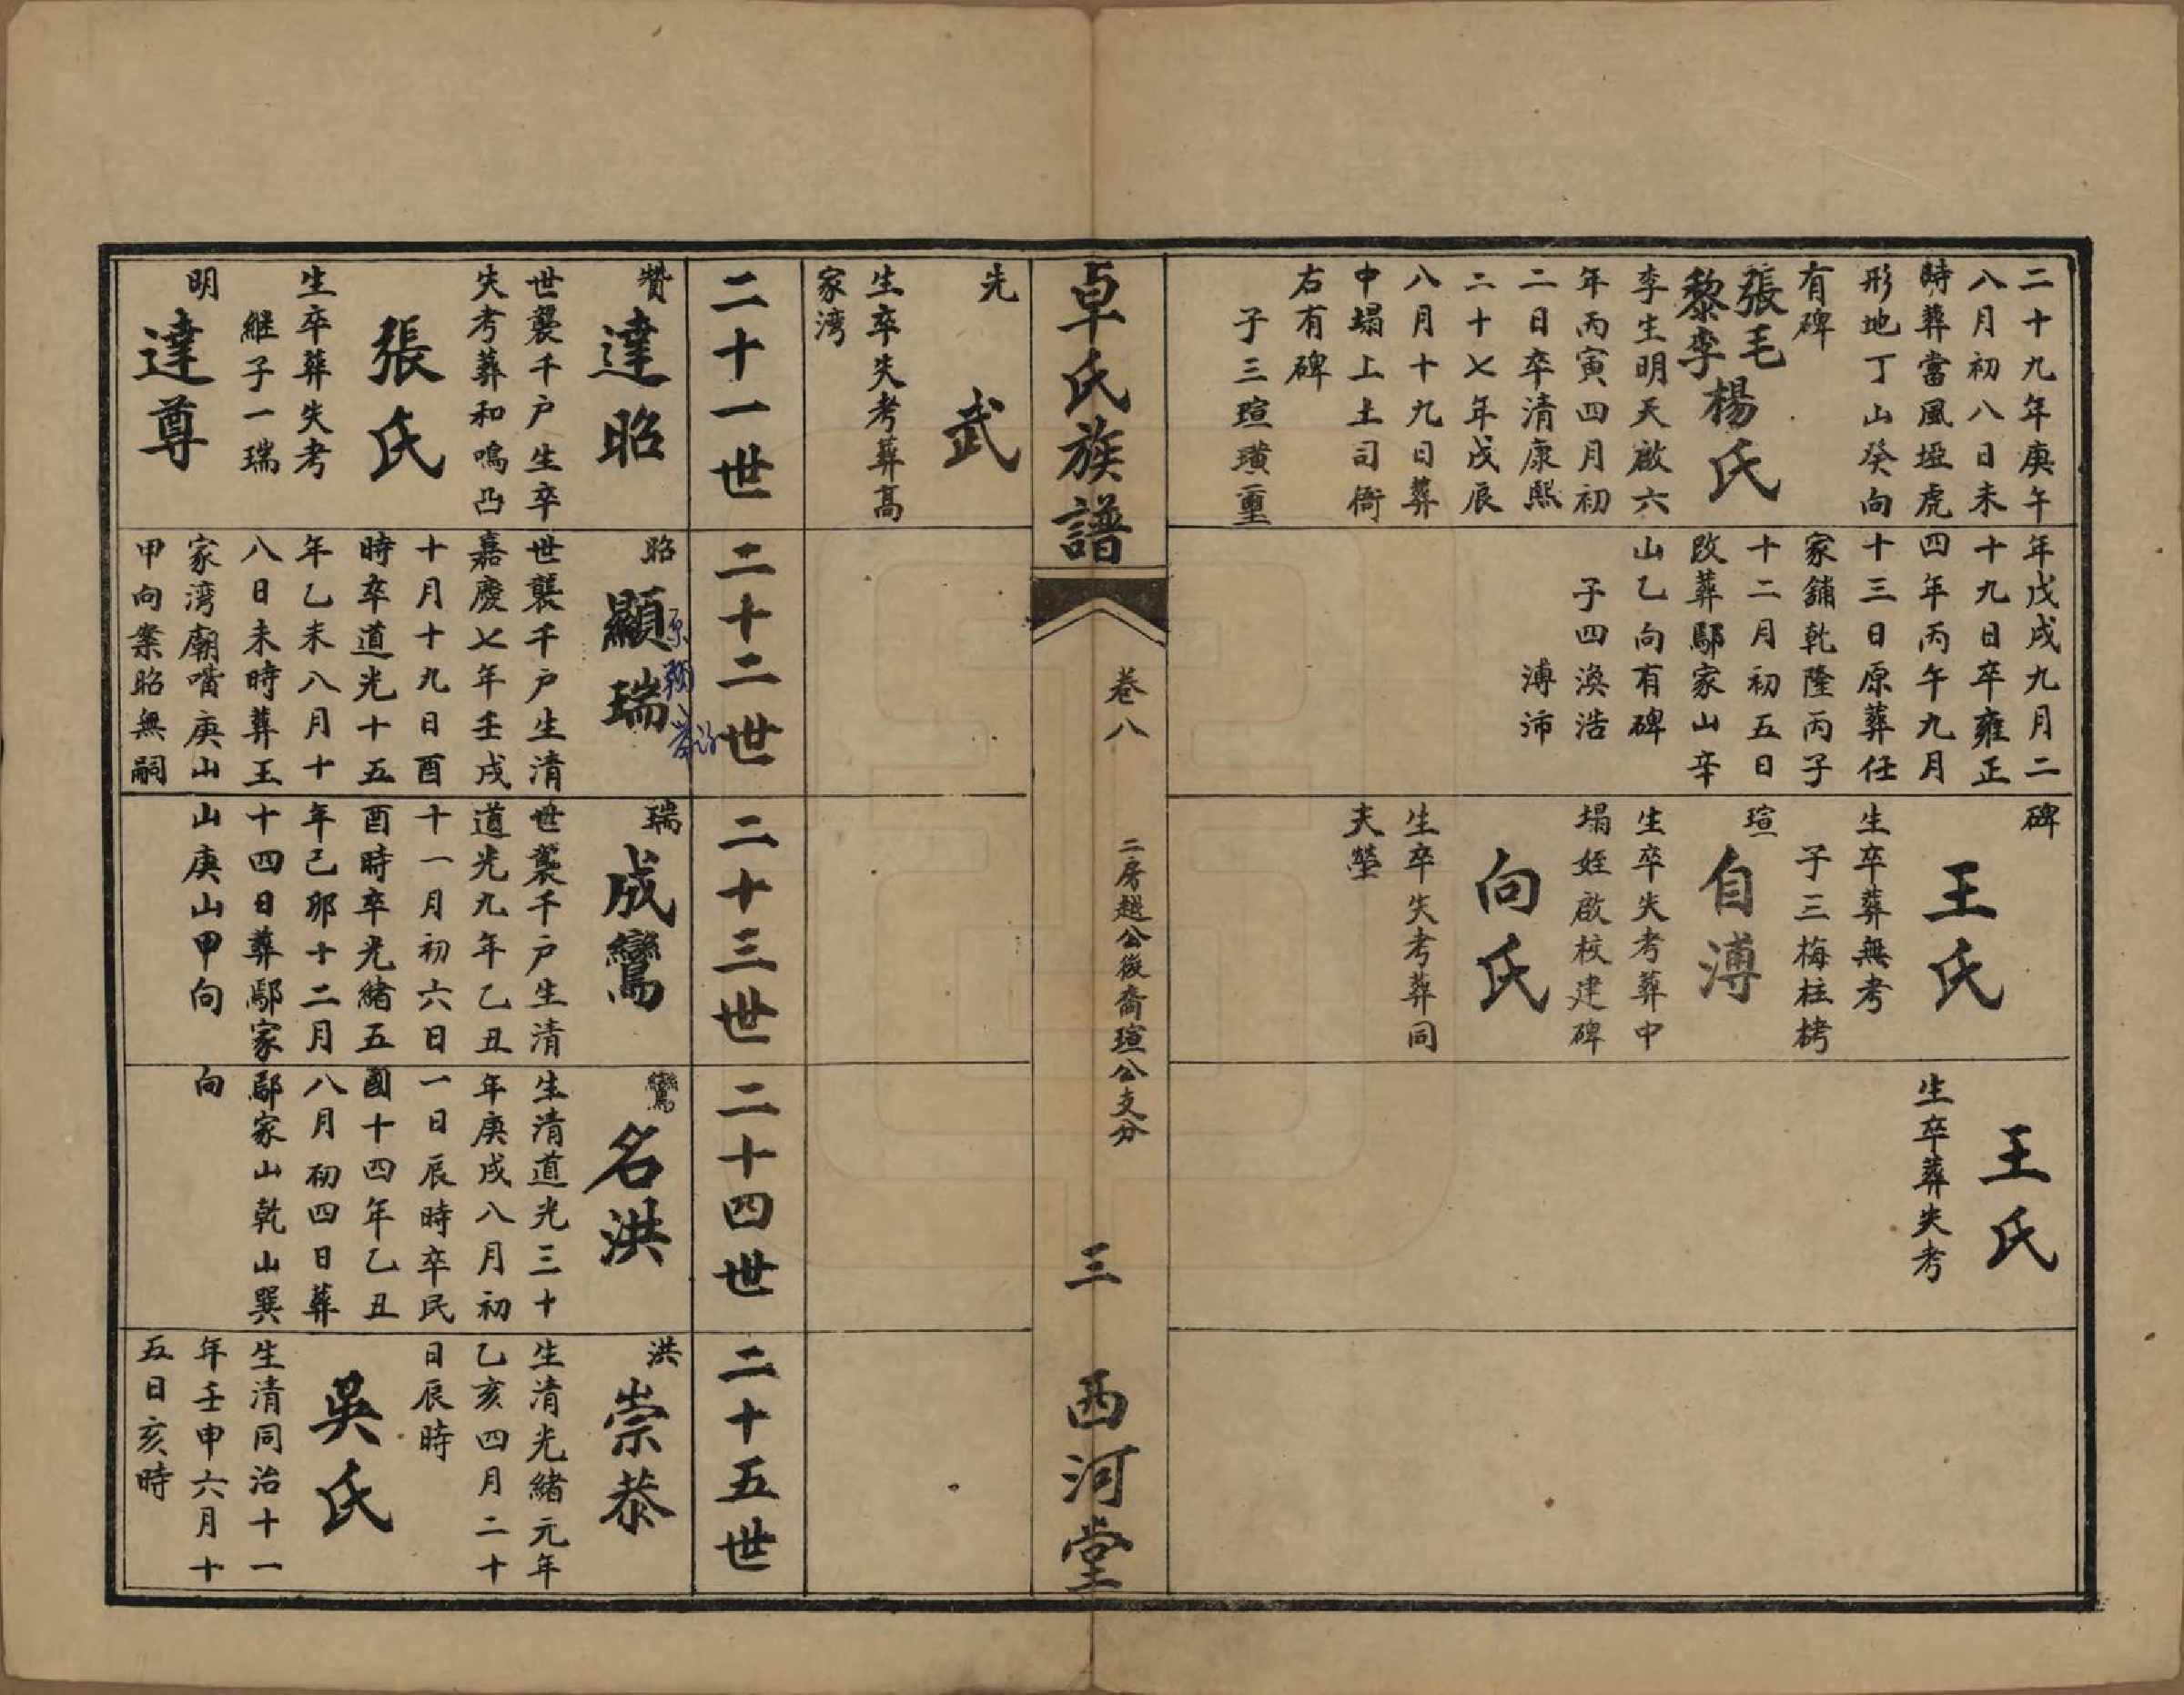 二十九年庚午
八月初八日未
時葬當風埡虎
形地丁山癸向
有碑
張毛
黎李
楊氏
李生明天啟六
年丙寅四月初
二日卒清康熙
二十七年戊辰
八月十九日葬
中塌上土司衙
右有碑
子三瑄璜璽
年戊戌九月二
十九日卒雍正
四年丙午九月
十三日原葬任
家舖乾隆丙子
十二月初五日
改葬鄢家山辛
山乙向有碑
子四渙浩
溥沛
碑
王氏
生卒葬無考
子三梅柱栲
瑄
自溥
生卒失考葬中
塌姪啟校建碑
向氏
生卒失考葬同
夫塋
王氏
生卒葬失考
卓氏族譜
卷八
二房越公後裔瑄公支分
三
西河堂
先
武
生卒失考葬高
家湾
二十一世
二十二世
二十三世
二十四世
二十五世
贊
達昭
世襲千户生卒
失考葬和鳴凸
張氏
生卒葬失考
継子一瑞
明
達尊
昭
顯瑞
世襲千户生清
嘉慶七年壬戌
十月十九日酉
時卒道光十五
年乙未八月十
八日未時葬王
家湾廟嘴庚山
甲向案昭無嗣
瑞
成鸞
世襲千户生清
道光九年乙丑
十一月初六日
酉時卒光緒五
年己卯十二月
十四日葬鄢家
山庚山甲向
鸞
名洪
生清道光三十
年庚戌八月初
一日辰時卒民
國十四年乙丑
八月初四日葬
鄢家山乾山巽
向
洪
崇恭
生清光緒元年
乙亥四月二十
日辰時
吳氏
生清同治十一
年壬申六月十
五日亥時